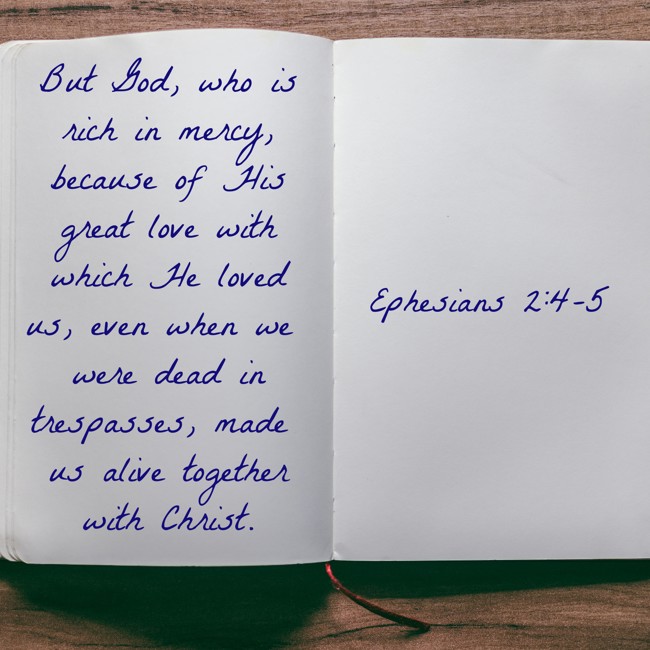 But God, who is
rich in mercy,
because of His
great love with
which He loved
us, even when we
were dead in
trespasses, made
us alive together
with Christ.
Ephesians 2:4-5